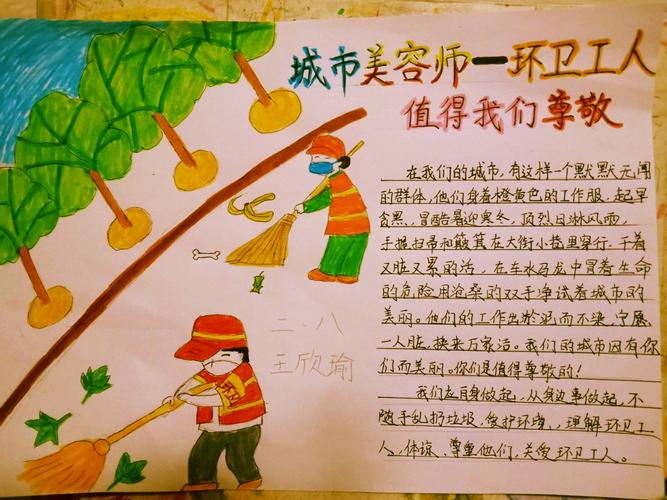 城市美容师一环卫工人
值得我们尊敬
在我们的城市,有这样一个默默无闻
的群体,他们身着橙黄色的工作服,起早
贪黑,冒酷暑迎寒冬,顶烈日淋风雨,
手握扫帚和簸箕在大街小巷里穿行,干着
又脏又累的活,在车水马龙中冒着生命
的危险用沧桑的双手净拭着城市的
美丽。他们的工作出淤泥而不染,宁愿
一人脏,换来万家洁。我们的城市因有你
们而美丽。你们是值得尊敬的!
我们应自身做起,从身边事做起,不
随手乱扔垃圾,爱护环境,理解环卫工
人,体谅、尊重他们,关爱环卫工人。
二、八
王欣瑜